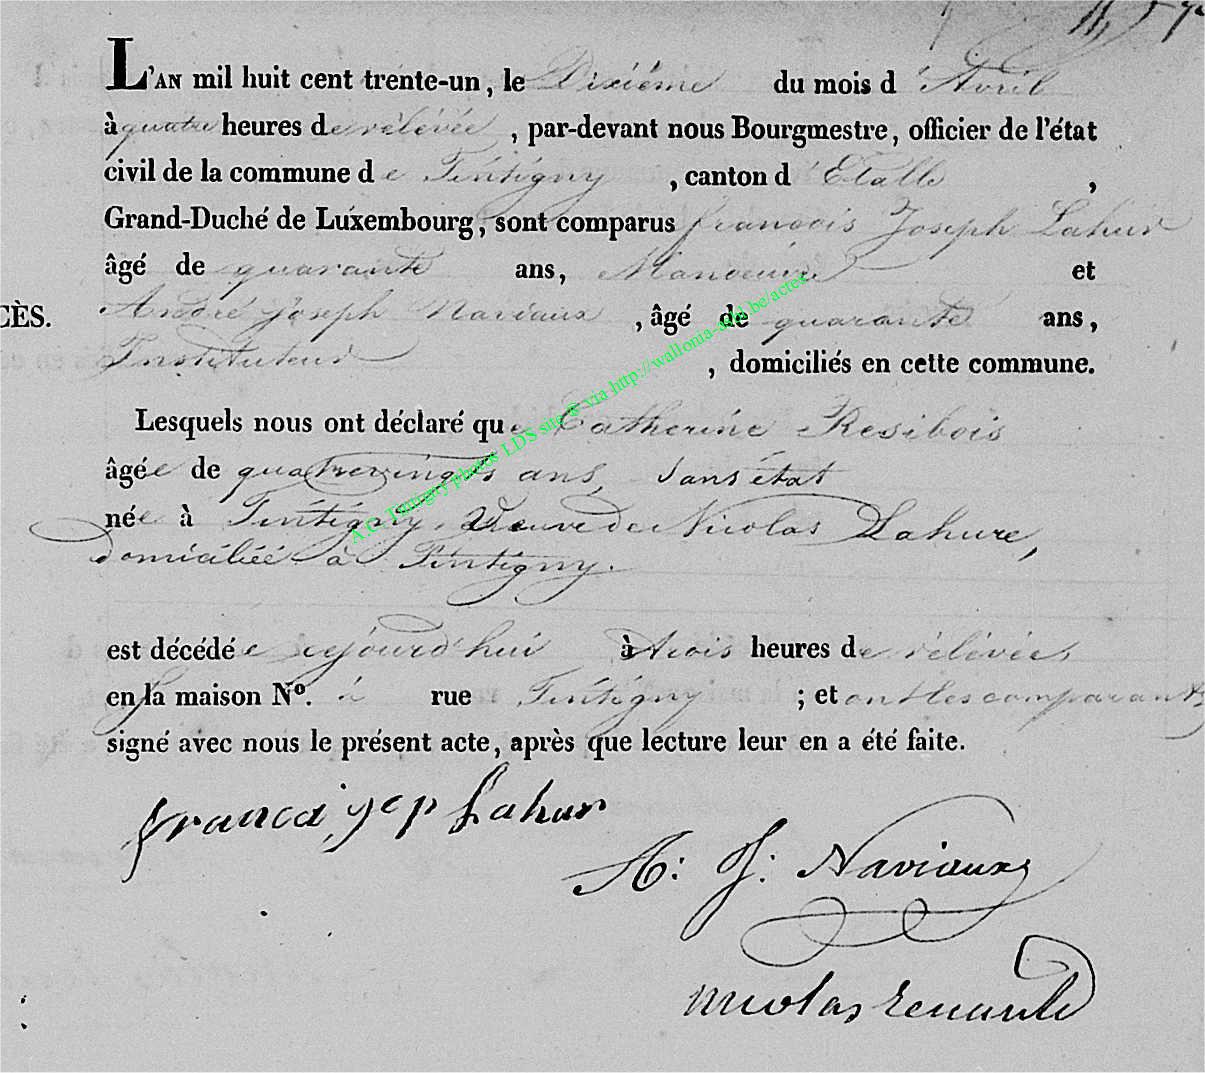 L'AN mil huit cent trente-un, le Dixiéme du mois d'Avril
à quatre heures de rélévée, par-devant nous Bourgmestre, officier de l'état
civil de la commune de Tintigny, canton d'Etalle,
Grand-Duché de Luxembourg, sont comparus françois Joseph Lahur
âgé de quarante ans, Manoeuvre et
CÈS.
André Joseph Naviaux, âgé de quarante ans,
Instituteur, domiciliés en cette commune.
Lesquels nous ont déclaré que Catherine Resibois
âgée de quatrevingts ans, Sans état
née à Tintigny, Veuve de Nicolas Lahure,
domiciliée à Tintigny.
est décédée aujourd'hui à trois heures de rélévées
en la maison N°. à rue Tintigny; et ont les comparants
signé avec nous le présent acte, après que lecture leur en a été faite.
Lahur
A: J: Naviaux
nicolas
A.C. Tintigny photos LDS site @ via http://wallonia-asbl.be/actes